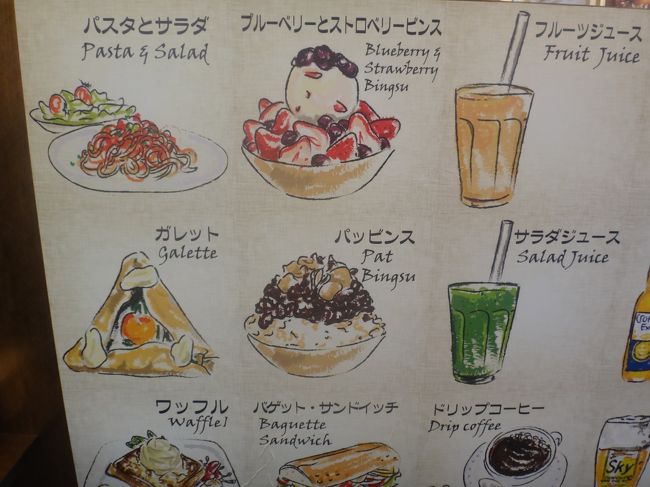 パスタとサラダ
Pasta & Salad
ブルーベリーとストロベリービンス
Blueberry &
Strawberry
Bingsu
フルーツジュース
Fruit Juice
ガレット
Galette
パッピンス
Pat
Bingsu
サラダジュース
Salad Juice
ワッフル
Waffle1
バゲット・サンドイッチ
Baguette
Sandwich
ドリップコーヒー
Drip coffee
Sky